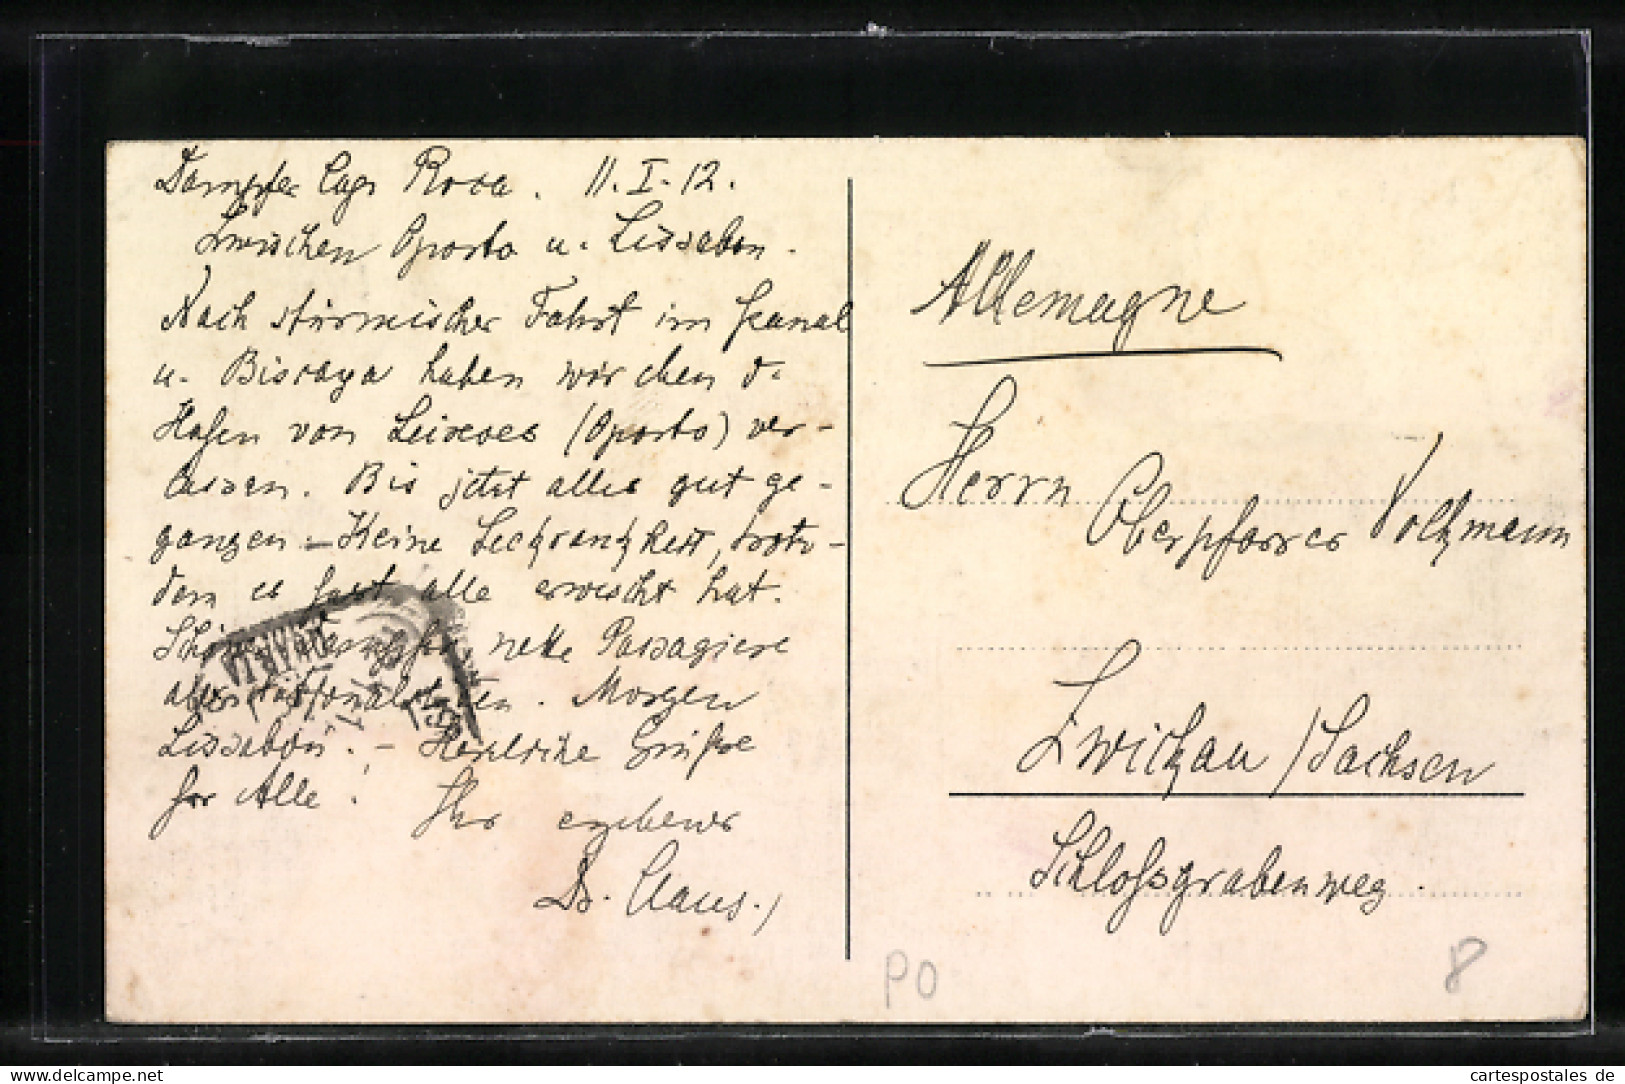 Dampfer Cap Roca. 11.I.12.
Zwischen Oporto u. Lissabon.
Nach stürmischer Fahrt im Kanal
u. Biscaya haben wir eben d.
Hafen von Leixoes (Oporto) ver-
lassen. Bis jetzt alles gut ge-
gangen – Keine Seekrankheit, trotz-
dem es fast alle erwischt hat.
Schöner Dampfer nette Passagiere
aller Nationalitäten. Morgen
Lissabon. – Herzliche Grüsse
for Alle!
Ihr ergebener
Dr. Claus.
Allemagne
Herrn
Oberpfarrer Volkmann
Zwickau / Sachsen
Schloßgrabenweg.
PO
8
cartespostales de